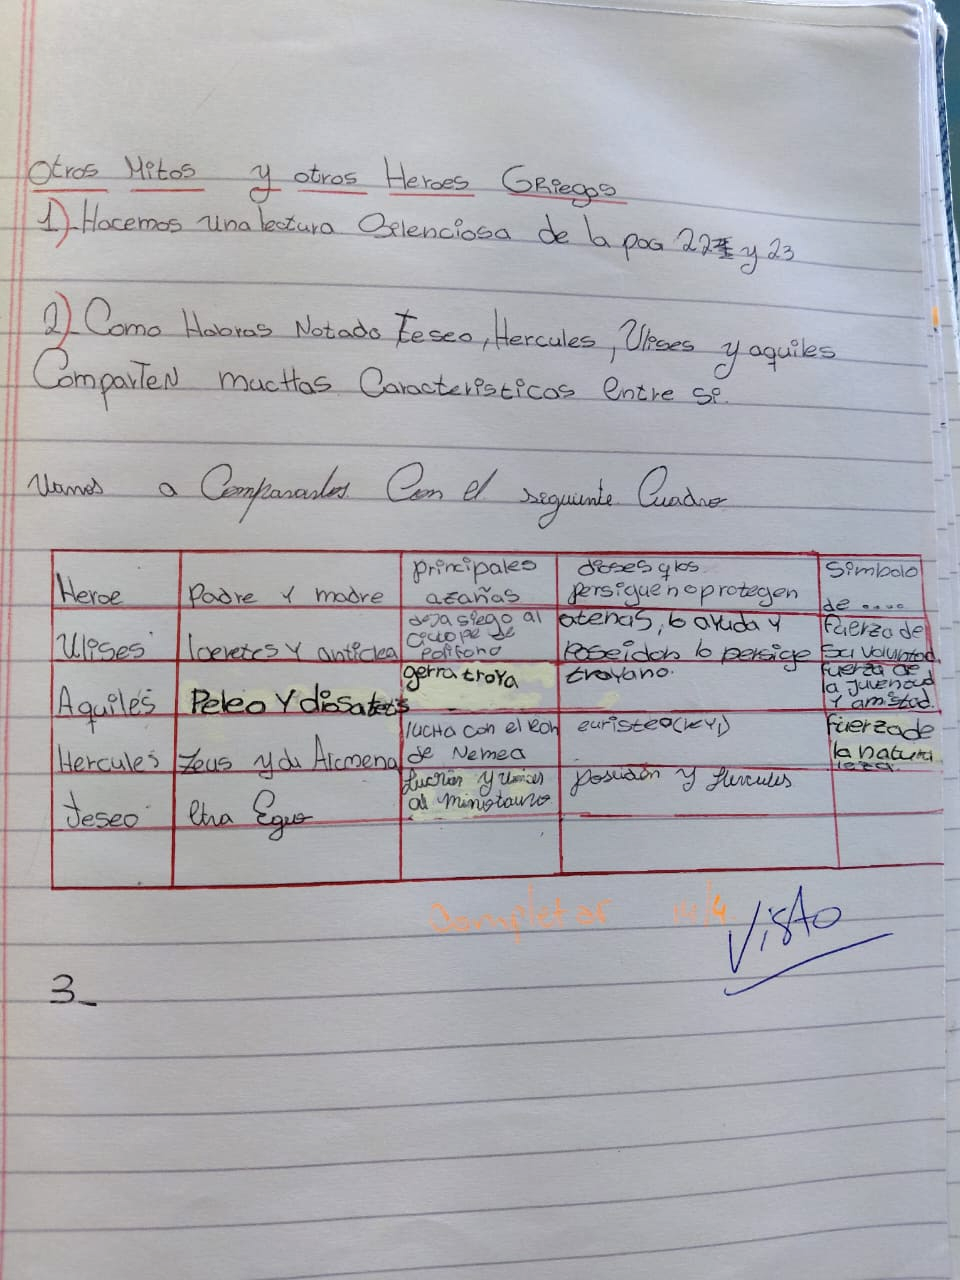 Otros Mitos y otros Heroes Griegos
1) Hacemos una lectura Silenciosa de la pag 22 y 23
2) Como Habras Notado Teseo, Hercules, Ulises y aquiles
Comparten muchas Caracteristicas entre si.
Vamos a Compararlos Con el seguinte Cuadro
Heroe
Padre y madre
principales
azañas
dioses q los
persiguen o protegen
Simbolo
de .....
Ulises
laeretes y anticlea
deja siego al
ciclope de
polifono
atenas, lo ayuda y
Poseidon lo persige
fuerza de
su voluntad.
Aquiles
Peleo y diosa tetis
gerra troya
troyano.
fuerza de
la juventud
y amistad.
Hercules
Zeus y du Alcmena
lucha con el leon
de Nemea
euristeo (rey)
fuerza de
la natura
leza.
Teseo
Etra Egeo
al minotauro
Poseidón y Hercules
Completar 14/4.
Visto
3_